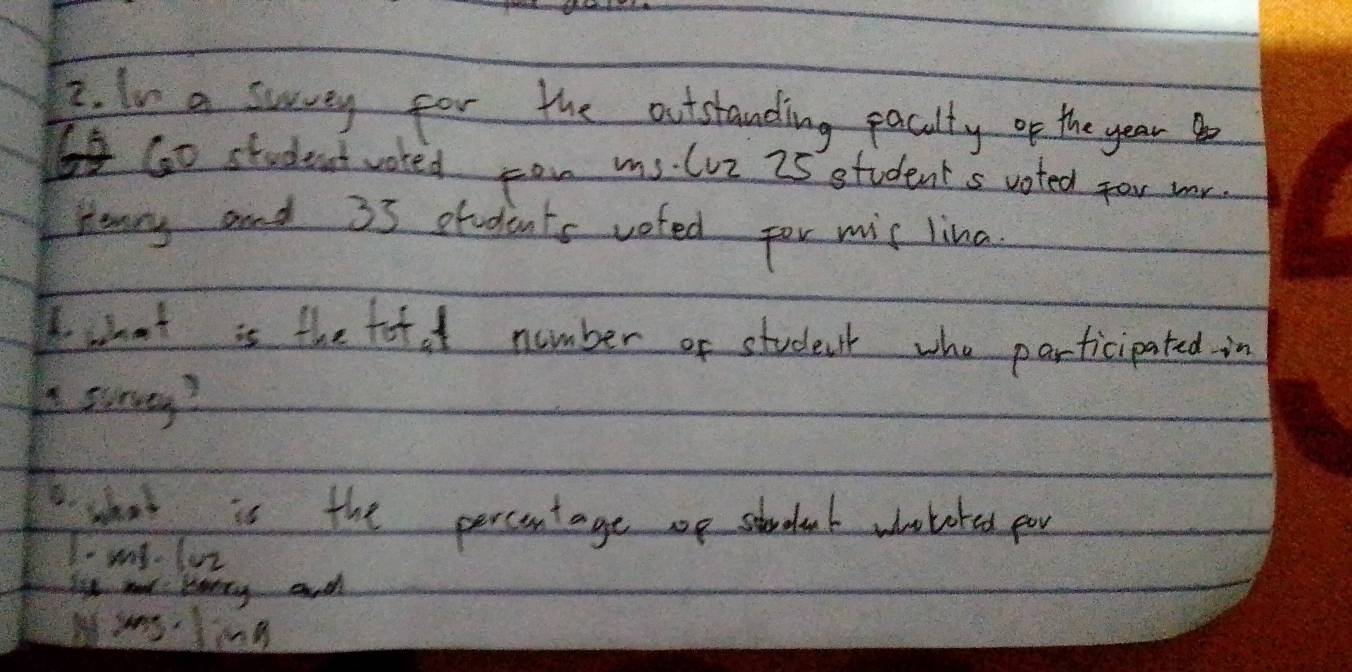 2. In a survey for the outstanding faculty of the year
60 student voted for ms. Luz 25 students voted for mr.
Henry and 35 students voted for mis lina.
1. what is the total number of student who participated in
a survey?
what is the percentage of student who voted for
1. ms. luz
mr. Henry and
ms. lina